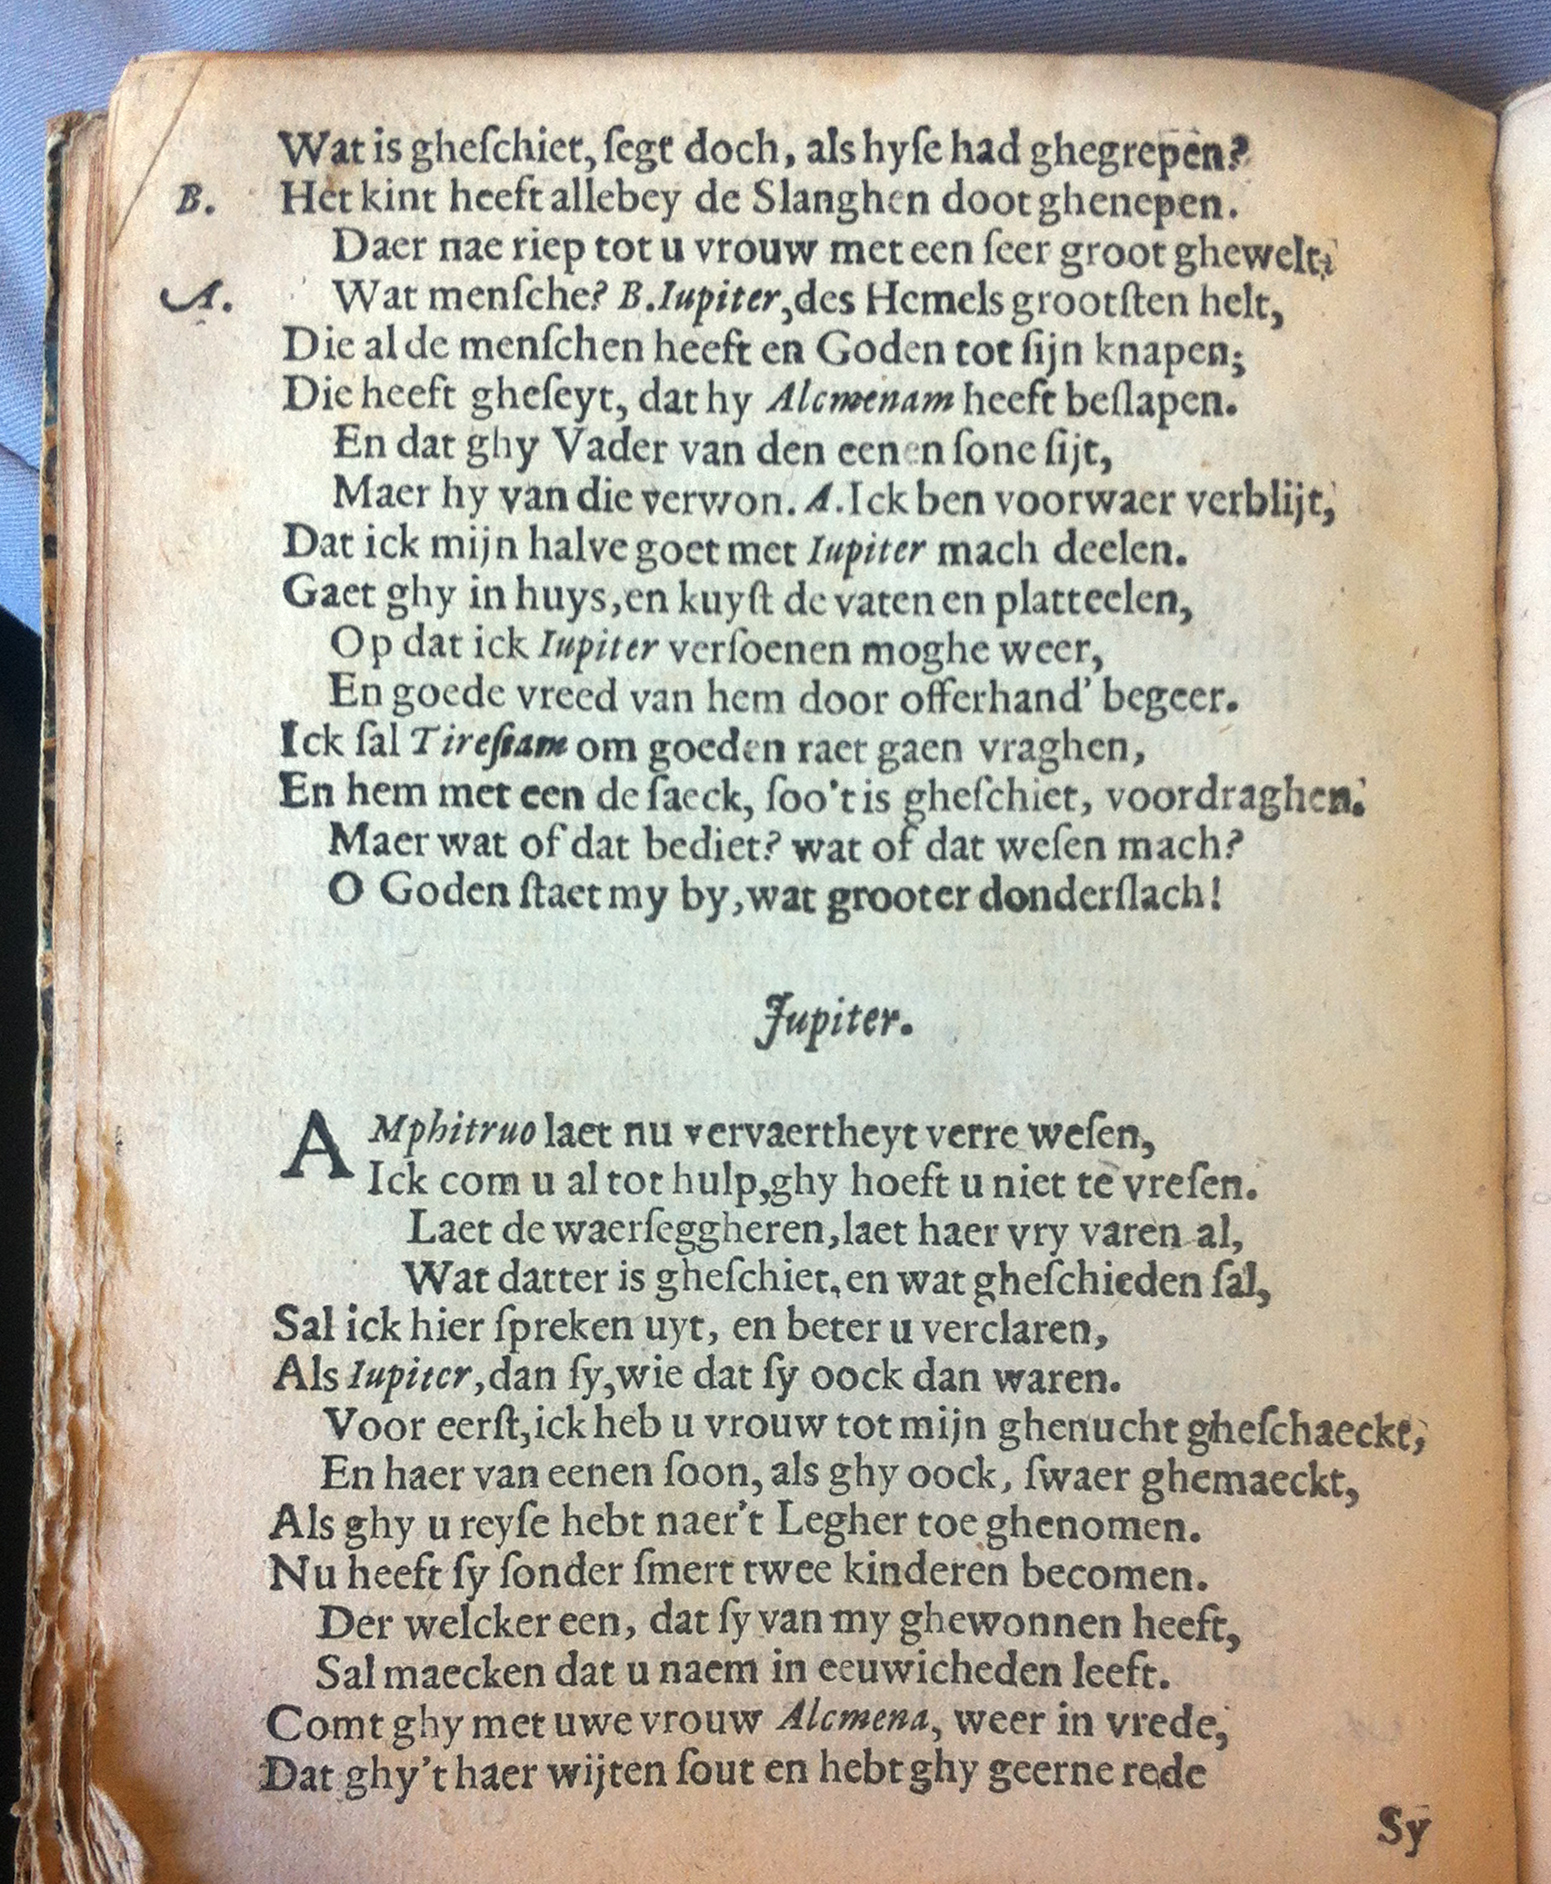 Wat is gheſchiet, ſegt doch, als hyſe had ghegrepen?
B. Het kint heeft allebey de Slanghen doot ghenepen.
Daer nae riep tot u vrouw met een ſeer groot ghewelt,
A. Wat menſche? B. Iupiter, des Hemels grootſten helt,
Die al de menſchen heeft en Goden tot ſijn knapen;
Die heeft gheſeyt, dat hy Alcmenam heeft beſlapen.
En dat ghy Vader van den eenen ſone ſijt,
Maer hy van die verwon. A. Ick ben voorwaer verblijt,
Dat ick mijn halve goet met Iupiter mach deelen.
Gaet ghy in huys, en kuyſt de vaten en platteelen,
Op dat ick Iupiter verſoenen moghe weer,
En goede vreed van hem door offerhand' begeer.
Ick ſal Tireſiam om goeden raet gaen vraghen,
En hem met een de ſaeck, ſoo't is gheſchiet, voordraghen.
Maer wat of dat bediet? wat of dat weſen mach?
O Goden ſtaet my by, wat grooter donderſlach!
Jupiter.
AMphitruo laet nu vervaertheyt verre weſen,
Ick com u al tot hulp, ghy hoeft u niet te vreſen.
Laet de waerſeggheren, laet haer vry varen al,
Wat datter is gheſchiet, en wat gheſchieden ſal,
Sal ick hier ſpreken uyt, en beter u verclaren,
Als Iupiter, dan ſy, wie dat ſy oock dan waren.
Voor eerſt, ick heb u vrouw tot mijn ghenucht gheſchaeckt,
En haer van eenen ſoon, als ghy oock, ſwaer ghemaeckt,
Als ghy u reyſe hebt naer't Legher toe ghenomen.
Nu heeft ſy ſonder ſmert twee kinderen becomen.
Der welcker een, dat ſy van my ghewonnen heeft,
Sal maecken dat u naem in eeuwicheden leeft.
Comt ghy met uwe vrouw Alcmena, weer in vrede,
Dat ghy't haer wijten ſout en hebt ghy geerne rede
Sy